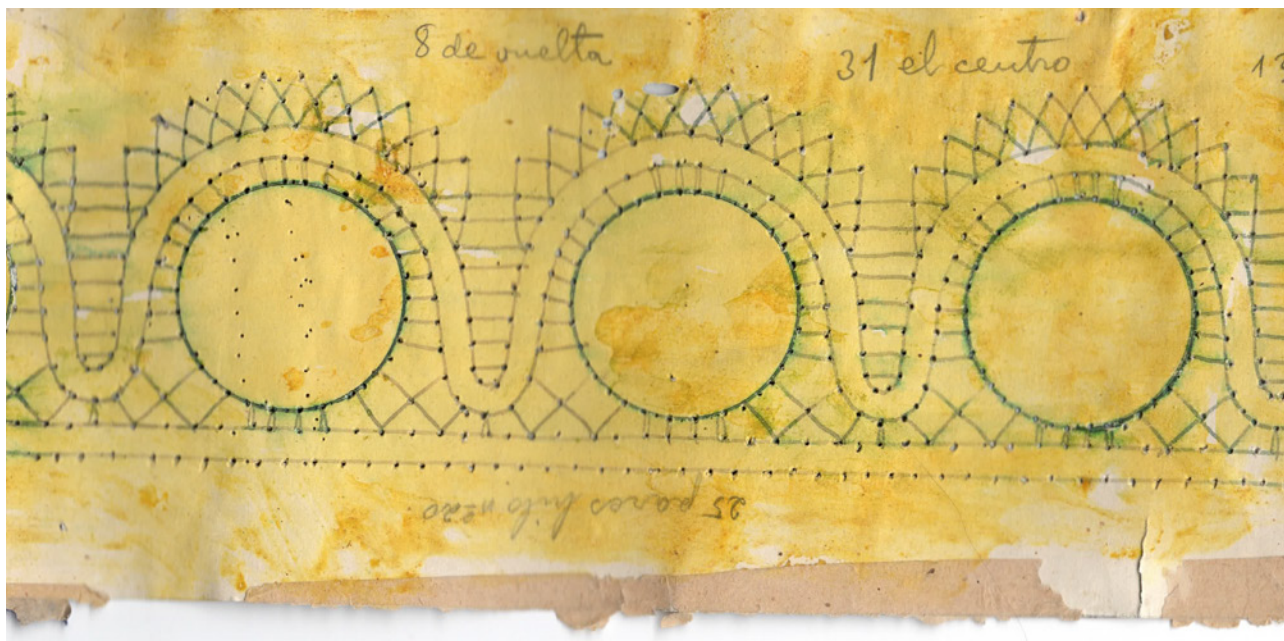 8 de vuelta
31 el centro
25 pares hilo nº 20